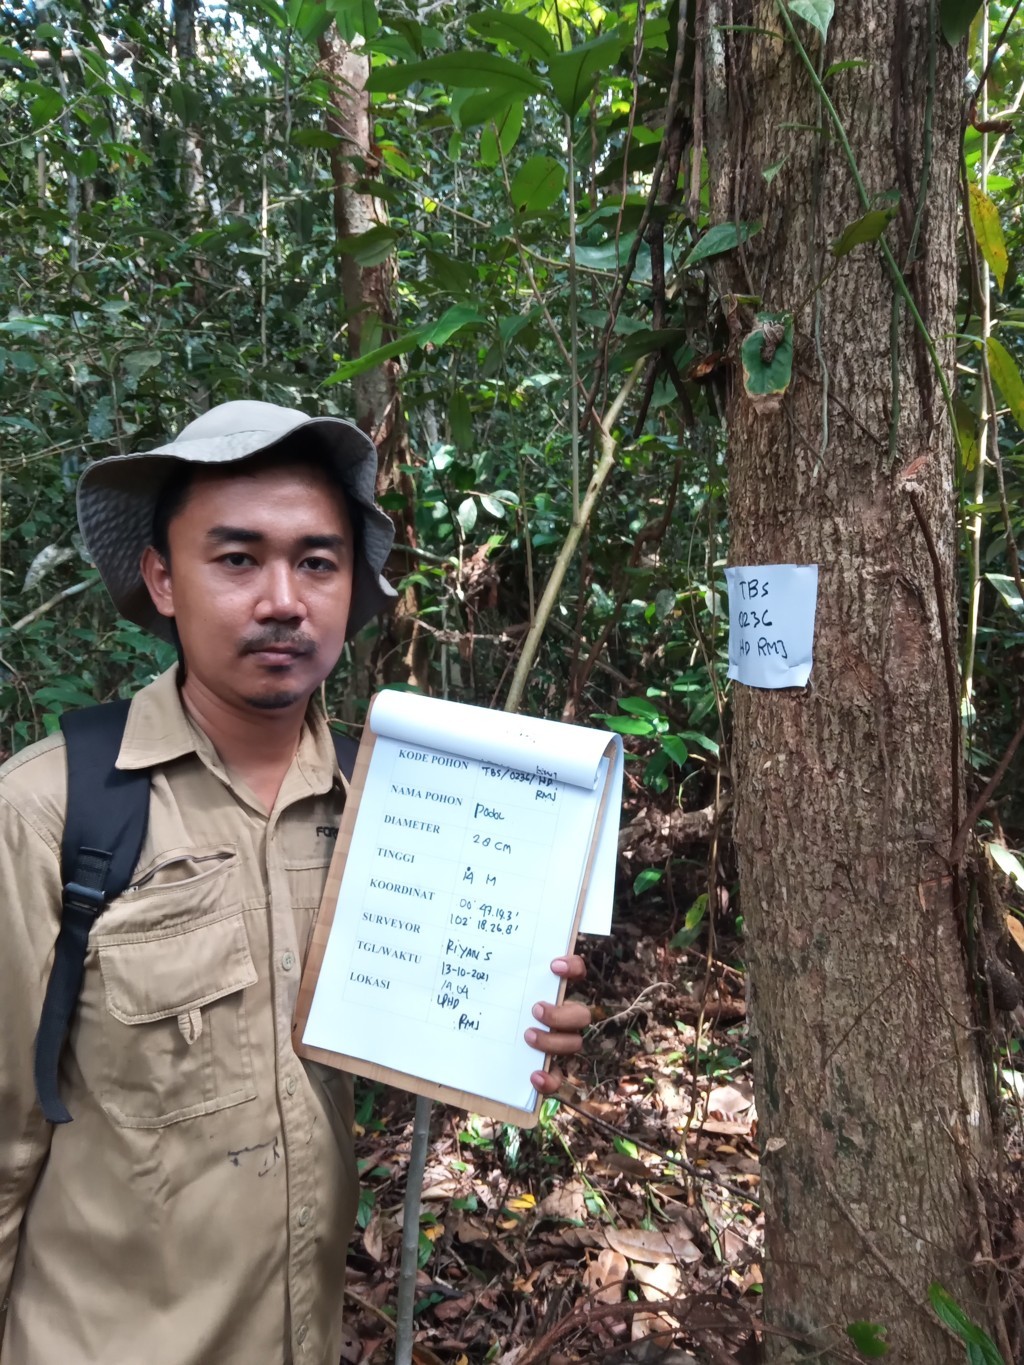 TBS
0236
HD RMJ
KODE POHON TBS/0236/HD
RMJ
NAMA POHON
DIAMETER 28 CM
TINGGI 14 M
KOORDINAT 00° 47.19.3'
102° 18.26.8'
SURVEYOR RiYAN'S
TGL/WAKTU 13-10-2021
14 04
LOKASI LPHD
RMJ
FOR